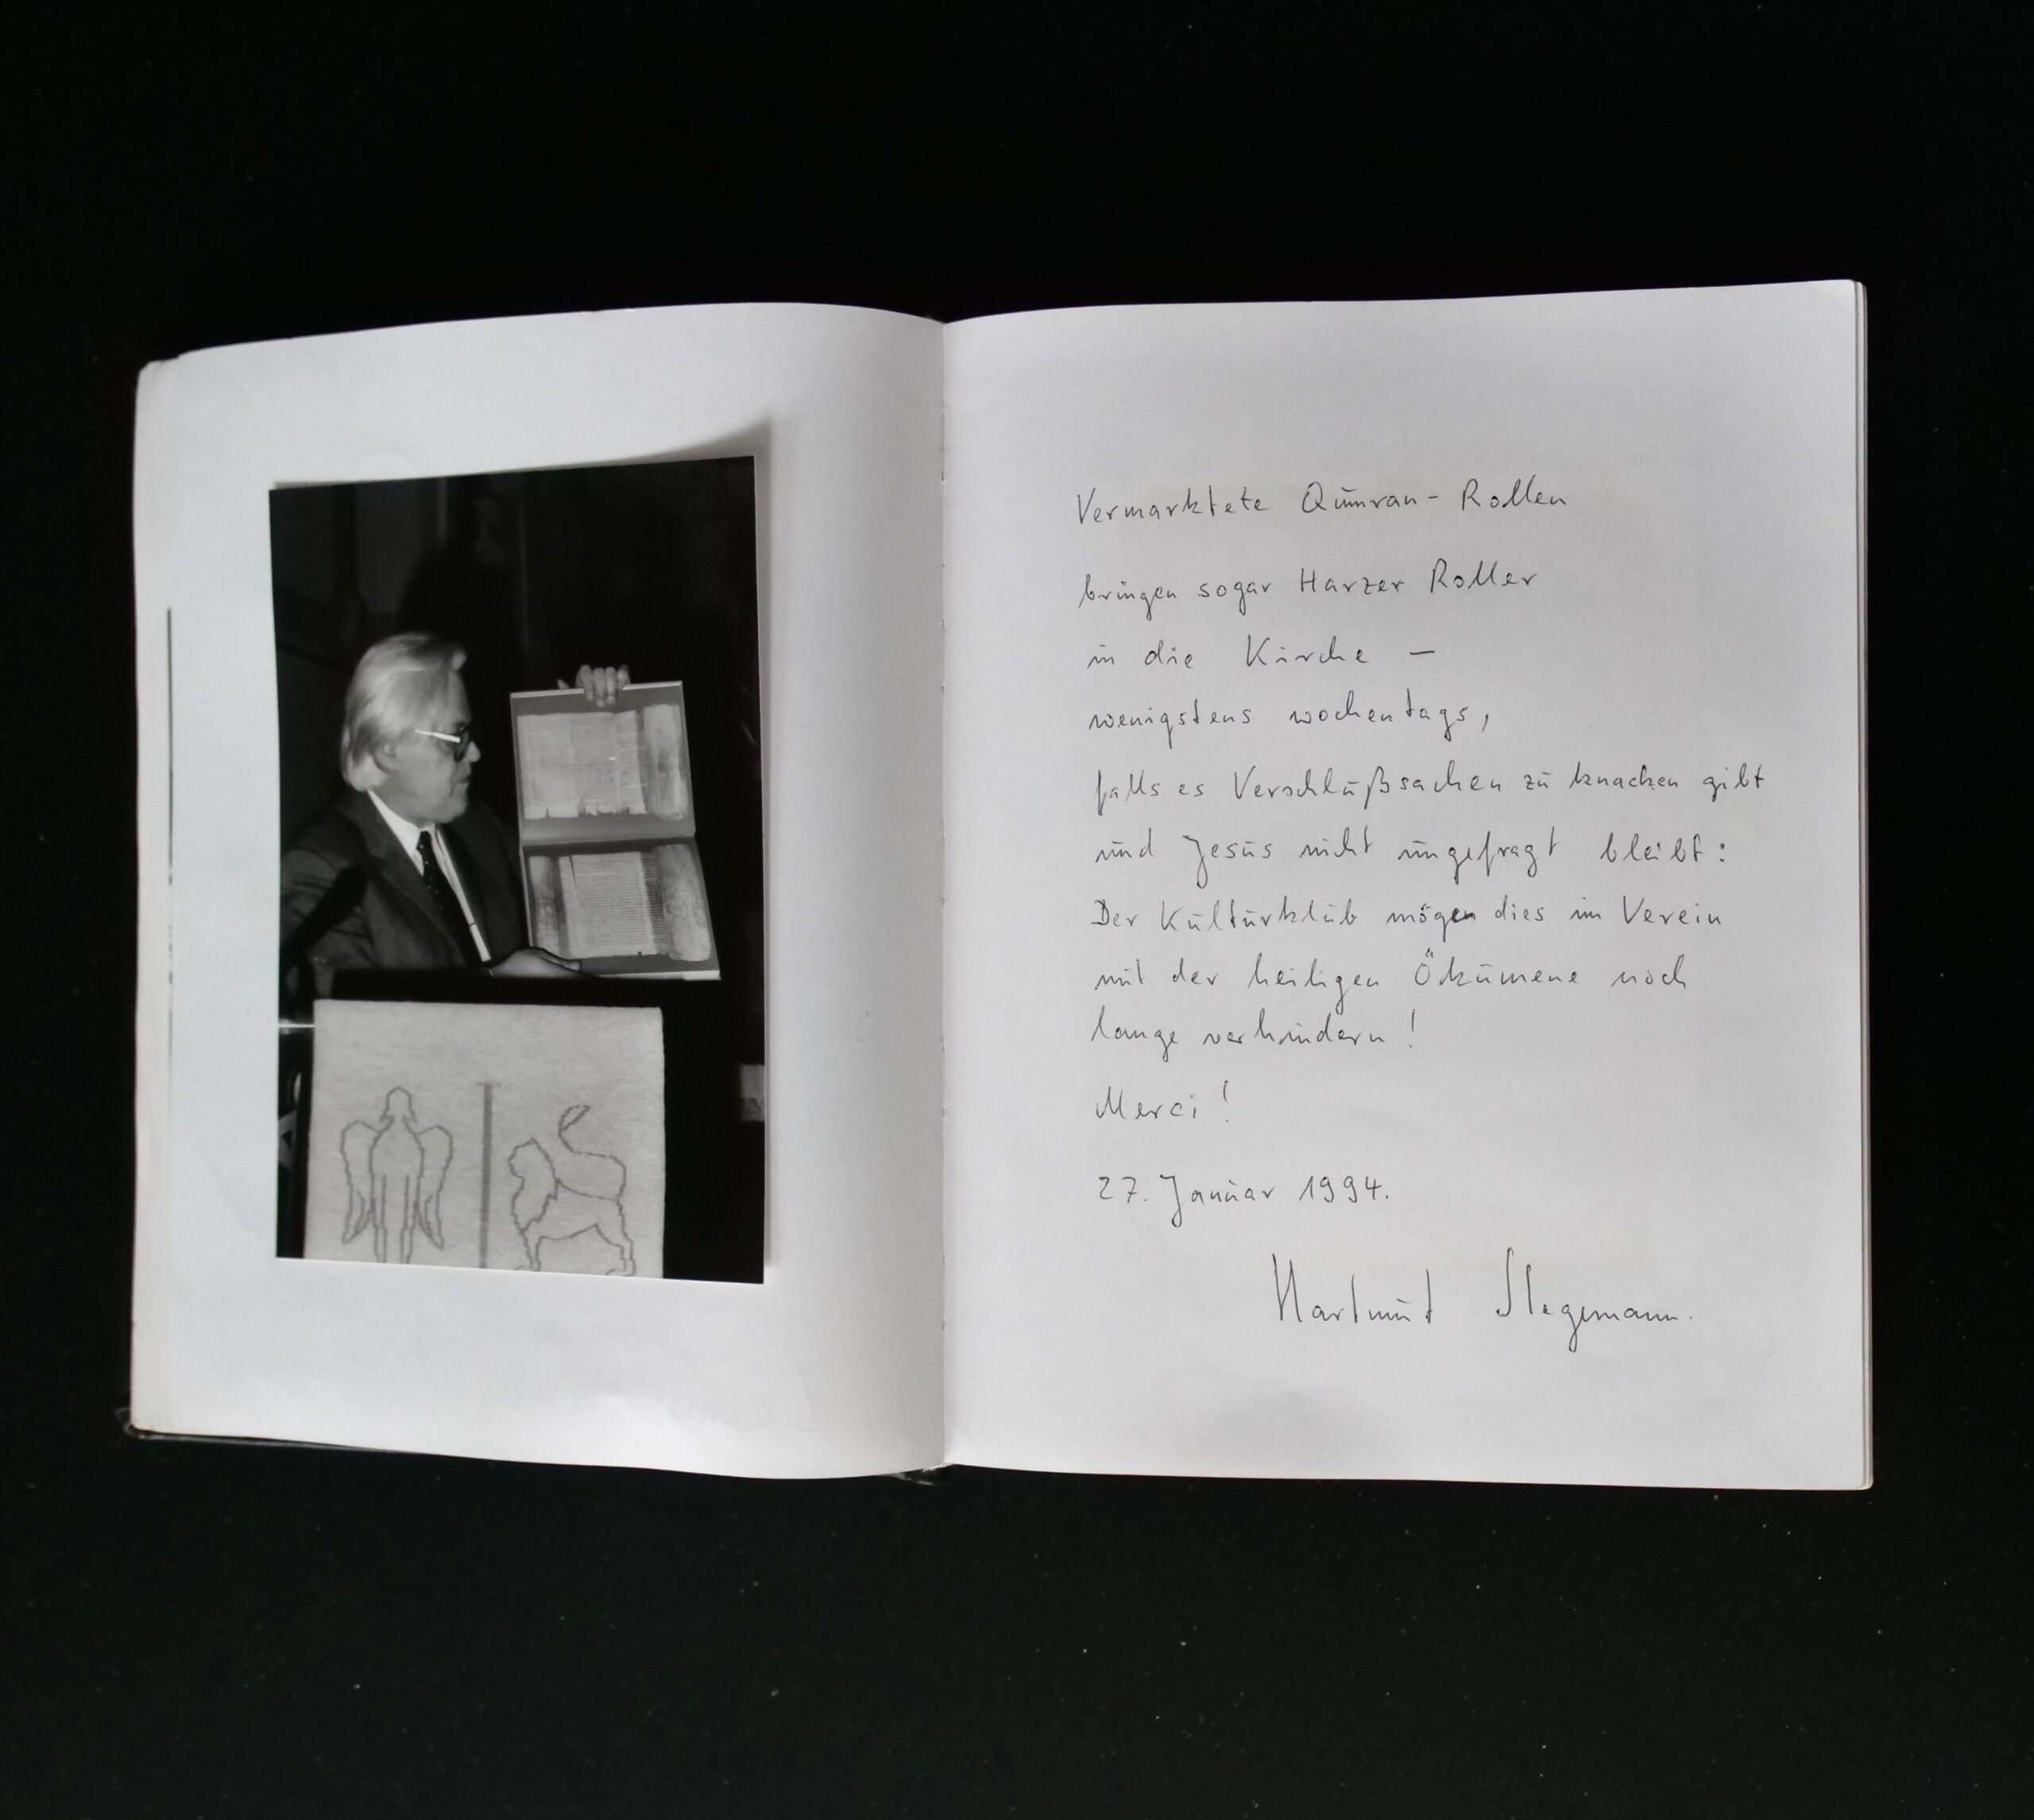 Vermarktete Qumran-Rollen
bringen sogar Harzer Roller
in die Kirche –
wenigstens wochentags,
falls es Verschlußsachen zu knacken gibt
und Jesus nicht ungefragt bleibt:
Der Kulturklub mögen dies im Verein
mit der heiligen Ökumene noch
lange verhindern!
Merci!
27. Januar 1994.
Hartmut Stegemann.